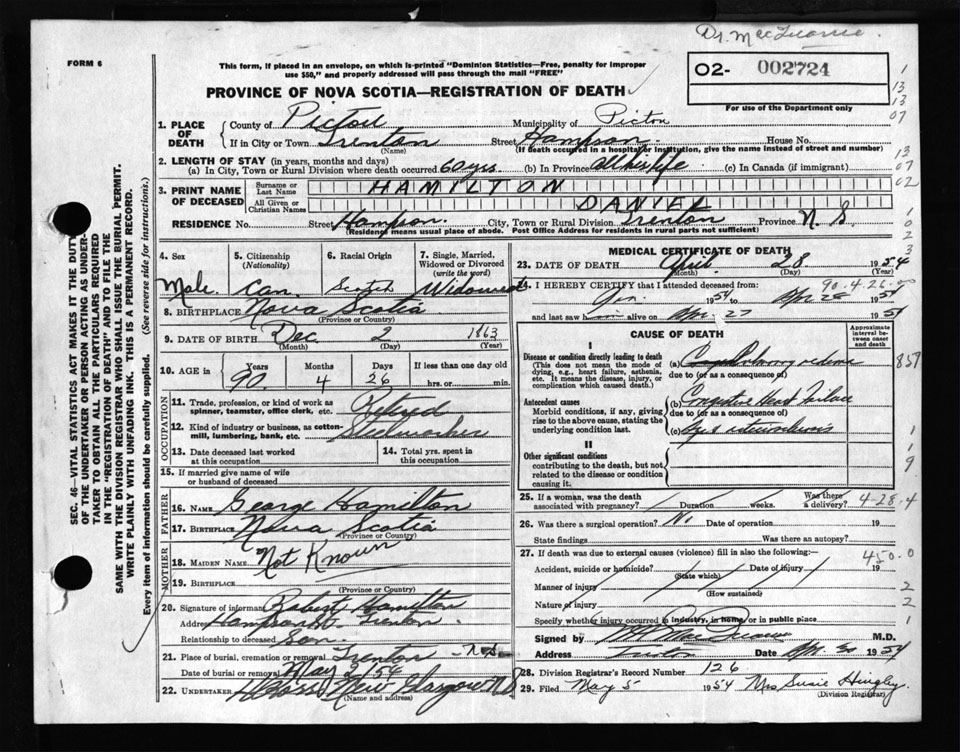 Dr. MacQuarrie.
FORM 6
This form, if placed in an envelope, on which is printed "Dominion Statistics—Free, penalty for improper
use $50," and properly addressed will pass through the mail "FREE"
02- 002724
PROVINCE OF NOVA SCOTIA—REGISTRATION OF DEATH
For use of the Department only
1. PLACE OF DEATH
County of Pictou Municipality of Pictou
If in City or Town Trenton (Name) Street Hampson House No.
(If death occurred in a hospital or institution, give the name instead of street and number)
2. LENGTH OF STAY (in years, months and days)
(a) In City, Town or Rural Division where death occurred 60 yrs. (b) In Province all his life (c) In Canada (if immigrant)
3. PRINT NAME OF DECEASED
Surname or Last Name HAMILTON
All Given or Christian Names DANIEL
RESIDENCE No. Street Hampson. City, Town or Rural Division Trenton Province N. S.
(Residence means usual place of abode. Post Office Address for residents in rural parts not sufficient)
4. Sex Male.
5. Citizenship (Nationality) Can.
6. Racial Origin Scotch
7. Single, Married, Widowed or Divorced (write the word) Widowed
8. BIRTHPLACE Nova Scotia
(Province or Country)
9. DATE OF BIRTH Dec. 2 1863
(Month) (Day) (Year)
10. AGE in Years 90 Months 4 Days 26 If less than one day old hrs. or min.
OCCUPATION
11. Trade, profession, or kind of work as spinner, teamster, office clerk, etc. Retired
12. Kind of industry or business, as cotton-mill, lumbering, bank, etc. Steelworker
13. Date deceased last worked at this occupation
14. Total yrs. spent in this occupation
15. If married give name of wife or husband of deceased
FATHER
16. NAME George Hamilton
17. BIRTHPLACE Nova Scotia
(Province or Country)
MOTHER
18. MAIDEN NAME Not Known
19. BIRTHPLACE
(Province or Country)
20. Signature of informant Robert Hamilton
Address Hampson St. Trenton.
Relationship to deceased Son.
21. Place of burial, cremation or removal Trenton - N.S.
Date of burial or removal May 2/54
22. UNDERTAKER New Glasgow N.S.
(Name and address)
MEDICAL CERTIFICATE OF DEATH
23. DATE OF DEATH April 28 1954
(Month) (Day) (Year)
24. I HEREBY CERTIFY that I attended deceased from: 90.4.26
Jan. 1954 to Apr. 28 1954
and last saw him alive on Apr. 27 1954
CAUSE OF DEATH
Approximate interval between onset and death
I
Disease or condition directly leading to death
(This does not mean the mode of dying, e.g., heart failure, asthenia, etc. It means the disease, injury, or complication which caused death.)
(a)
due to (or as a consequence of)
Antecedent causes
Morbid conditions, if any, giving rise to the above cause, stating the underlying condition last.
(b) Congestive Heart Failure
due to (or as a consequence of)
(c)
II
Other significant conditions
contributing to the death, but not related to the disease or condition causing it.
25. If a woman, was the death associated with pregnancy? Duration weeks. Was there a delivery?
4-28-4
26. Was there a surgical operation? No Date of operation 19
State findings Was there an autopsy?
27. If death was due to external causes (violence) fill in also the following:—
450.0
Accident, suicide or homicide? Date of injury 19
(State which)
Manner of injury
(How sustained)
Nature of injury
Specify whether injury occurred in industry, in home or in public place
Signed by M.D.
Address Date Apr. 30 1954
28. Division Registrar's Record Number 126
29. Filed May 5 1954 Mrs Susie Hingley.
(Division Registrar)
SEC. 46—VITAL STATISTICS ACT MAKES IT THE DUTY
OF THE UNDERTAKER OR PERSON ACTING AS UNDER-
TAKER TO OBTAIN ALL THE PARTICULARS REQUIRED
IN THE "REGISTRATION OF DEATH" AND TO FILE THE
SAME WITH THE DIVISION REGISTRAR WHO SHALL ISSUE THE BURIAL PERMIT.
WRITE PLAINLY WITH UNFADING INK. THIS IS A PERMANENT RECORD.
Every item of information should be carefully supplied. (See reverse side for instructions.)